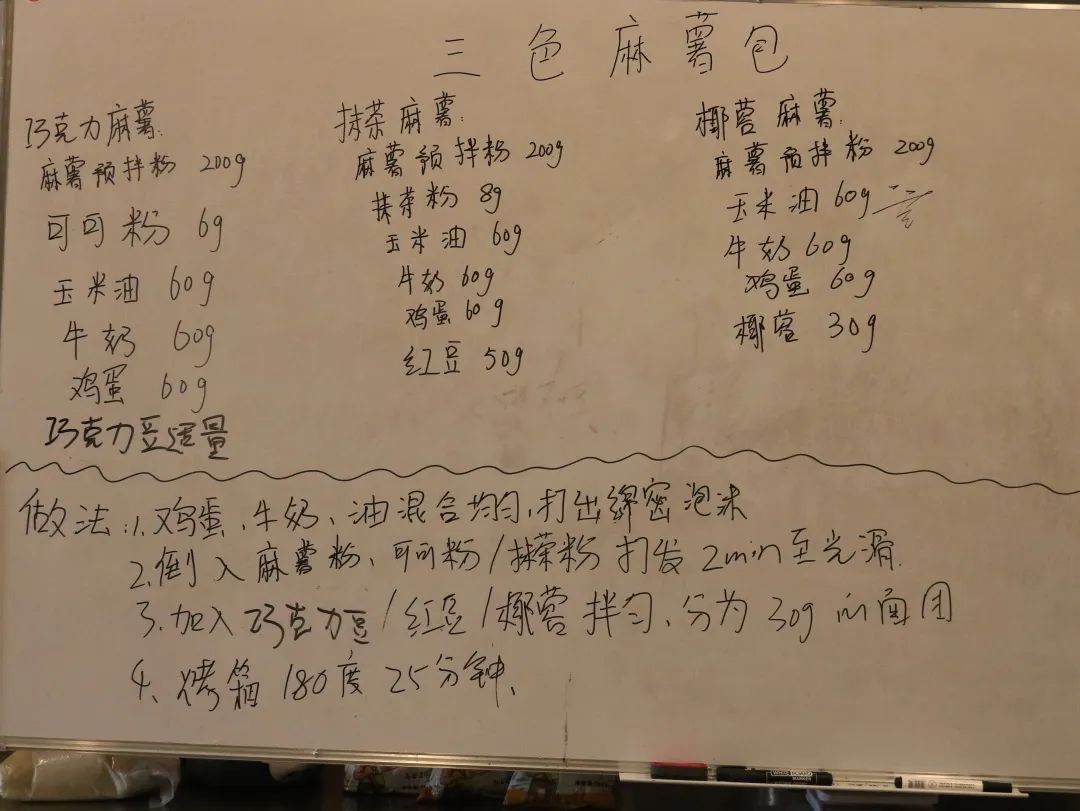 三色麻薯包
巧克力麻薯:
麻薯预拌粉 200g
可可粉 6g
玉米油 60g
牛奶 60g
鸡蛋 60g
巧克力豆适量
抹茶麻薯:
麻薯预拌粉 200g
抹茶粉 8g
玉米油 60g
牛奶 60g
鸡蛋 60g
红豆 50g
椰蓉麻薯:
麻薯预拌粉 200g
玉米油 60g
牛奶 60g
鸡蛋 60g
椰蓉 30g
做法:1、鸡蛋、牛奶、油混合均匀,打出绵密泡沫
2、倒入麻薯粉、可可粉/抹茶粉 打发2min至光滑.
3、加入巧克力豆/红豆/椰蓉拌匀、分为30g的面团
4、烤箱180度25分钟、
WHITEBOARD
MARKER